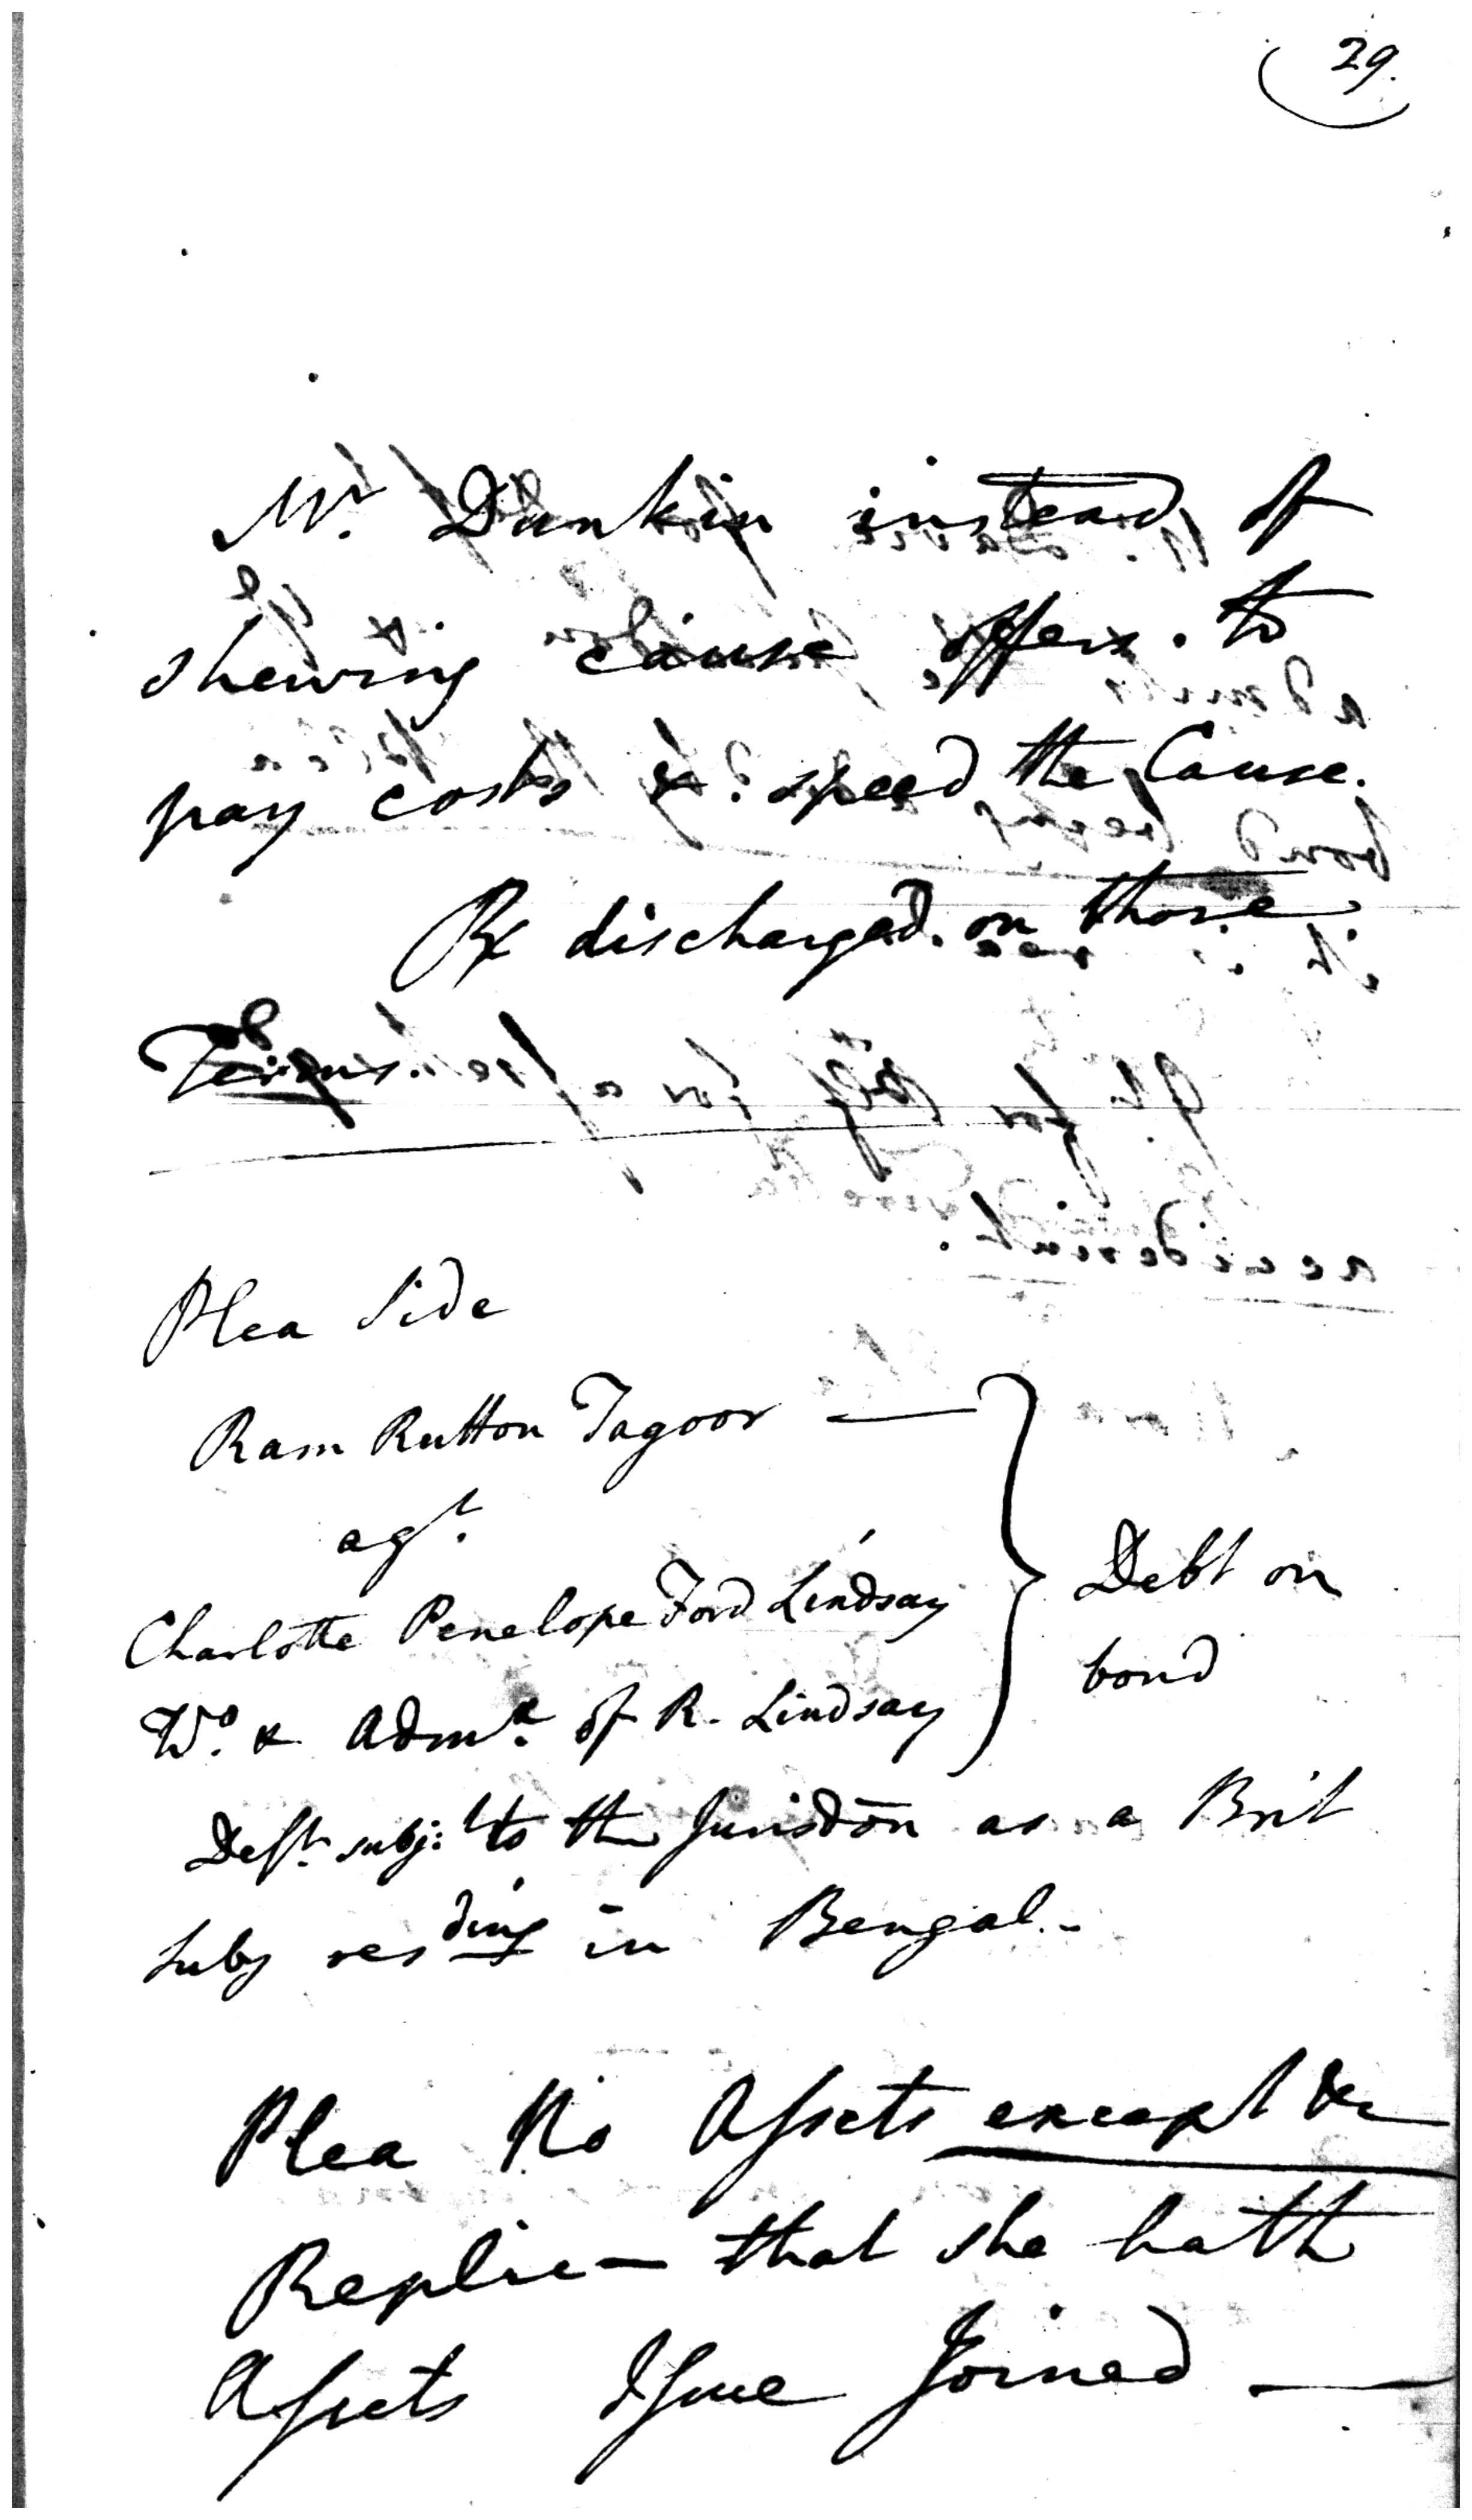 29.
Mr. Dunkin instead of
shewing cause offers to
pay costs & speed the Cause.
Rx discharged on those
Terms.
Plea Side
Ram Rutton Tagoor —
agt.
Charlotte Penelope Ford Lindsay
Wo. & Admx. of R. Lindsay
Debt on
bond
Deft. subj: to the Jurisdōn as a Brit
Subj resding in Bengal.-
Plea No Assets except &c
Replic— that she hath
Assets Issue Joined —